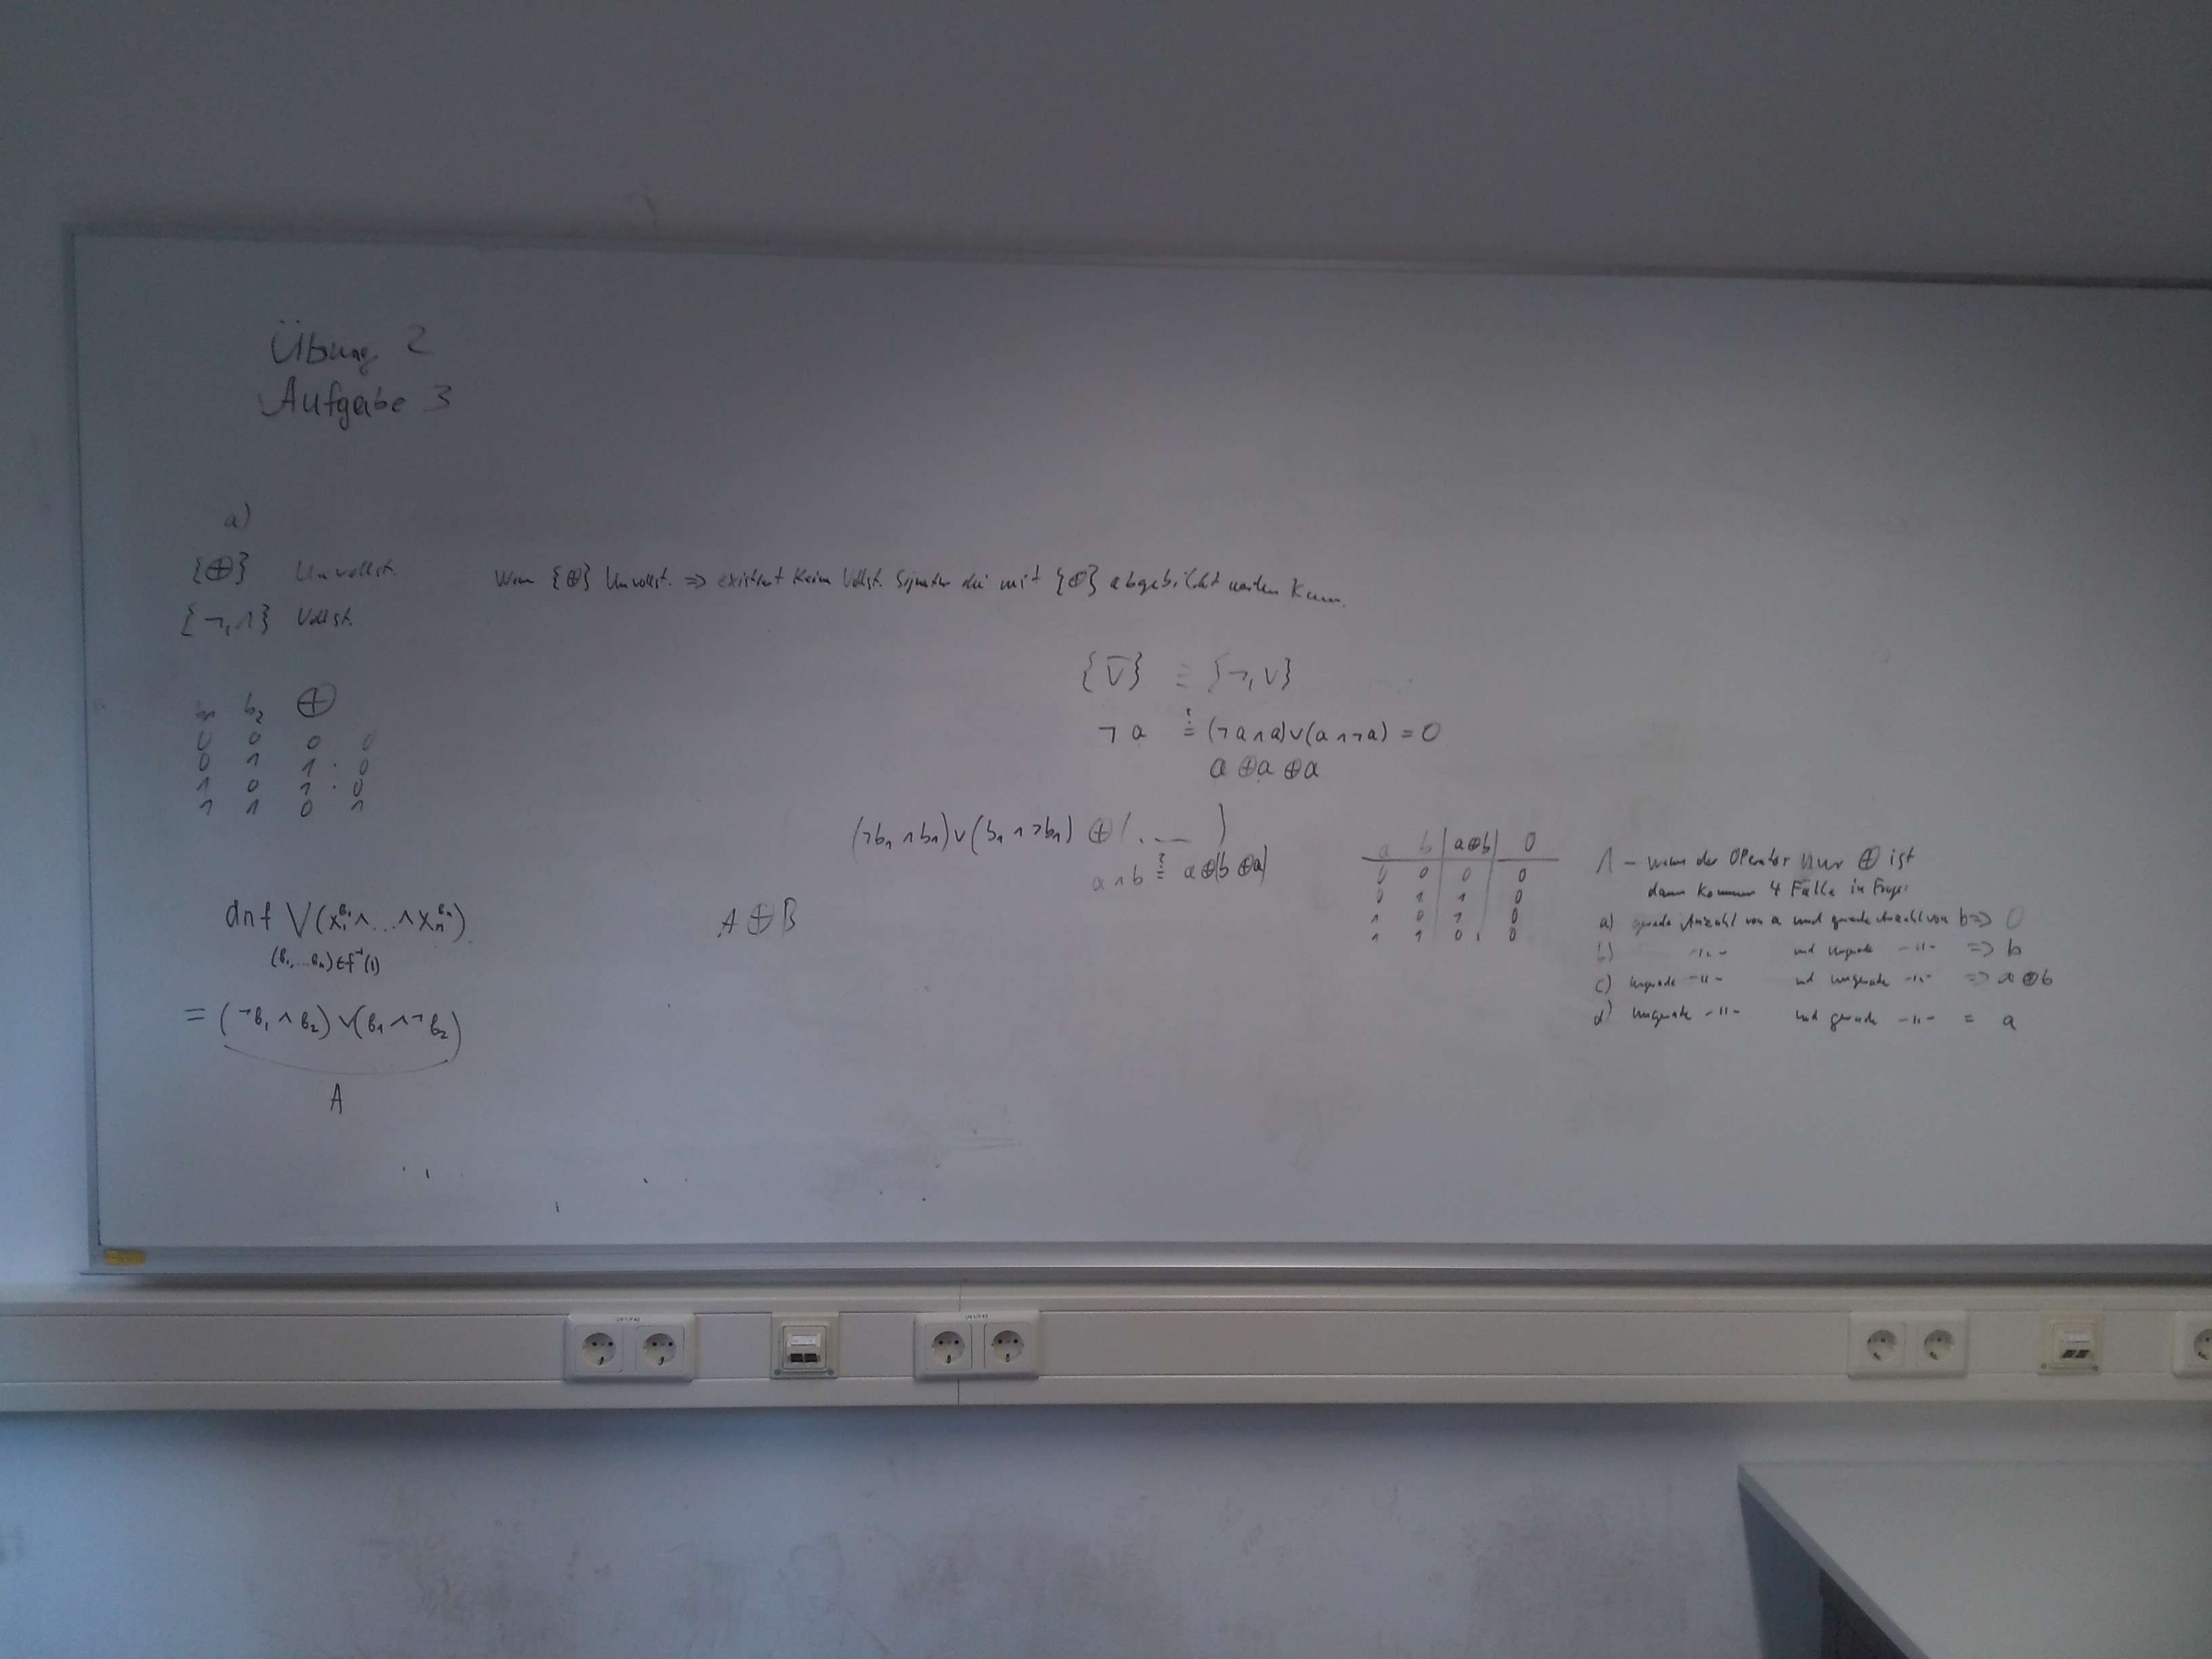 Übung 2
Aufgabe 3
a)
{⊕} Unvollst.
Wenn {⊕} Unvollst. => existiert keine Vollst. Signatur die mit {⊕} abgebildet werden kann.
{¬,∧} Vollst.
b₁ b₂ ⊕
0 0 0 0
0 1 1 · 0
1 0 1 · 0
1 1 0 1
dnf ⋁(x₁^b₁ ∧ … ∧ xₙ^bₙ)
(b₁,…bₙ)∈f⁻¹(1)
= (¬b₁ ∧ b₂) ∨ (b₁ ∧ ¬b₂)
A
A ⊕ B
{⊽} ≡ {¬,∨}
¬a ≟ (¬a∧a)∨(a∧¬a) = 0
a ⊕a ⊕a
(¬b₁ ∧ b₁) ∨ (b₁ ∧ ¬b₁) ⊕ ( … )
a∧b ≟ a⊕(b⊕a)
a b a⊕b 0
0 0 0 0
0 1 1 0
1 0 1 0
1 1 0 0
∧ - wenn der Operator nur ⊕ ist
dann kommen 4 Fälle in Frage:
a) gerade Anzahl von a und gerade Anzahl von b => 0
b) -"- und ungerade -"- => b
c) ungerade -"- und ungerade -"- => a⊕b
d) ungerade -"- und gerade -"- = a